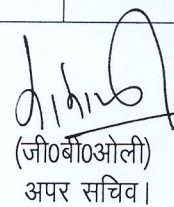 (जी0बी0ओली)
अपर सचिव।